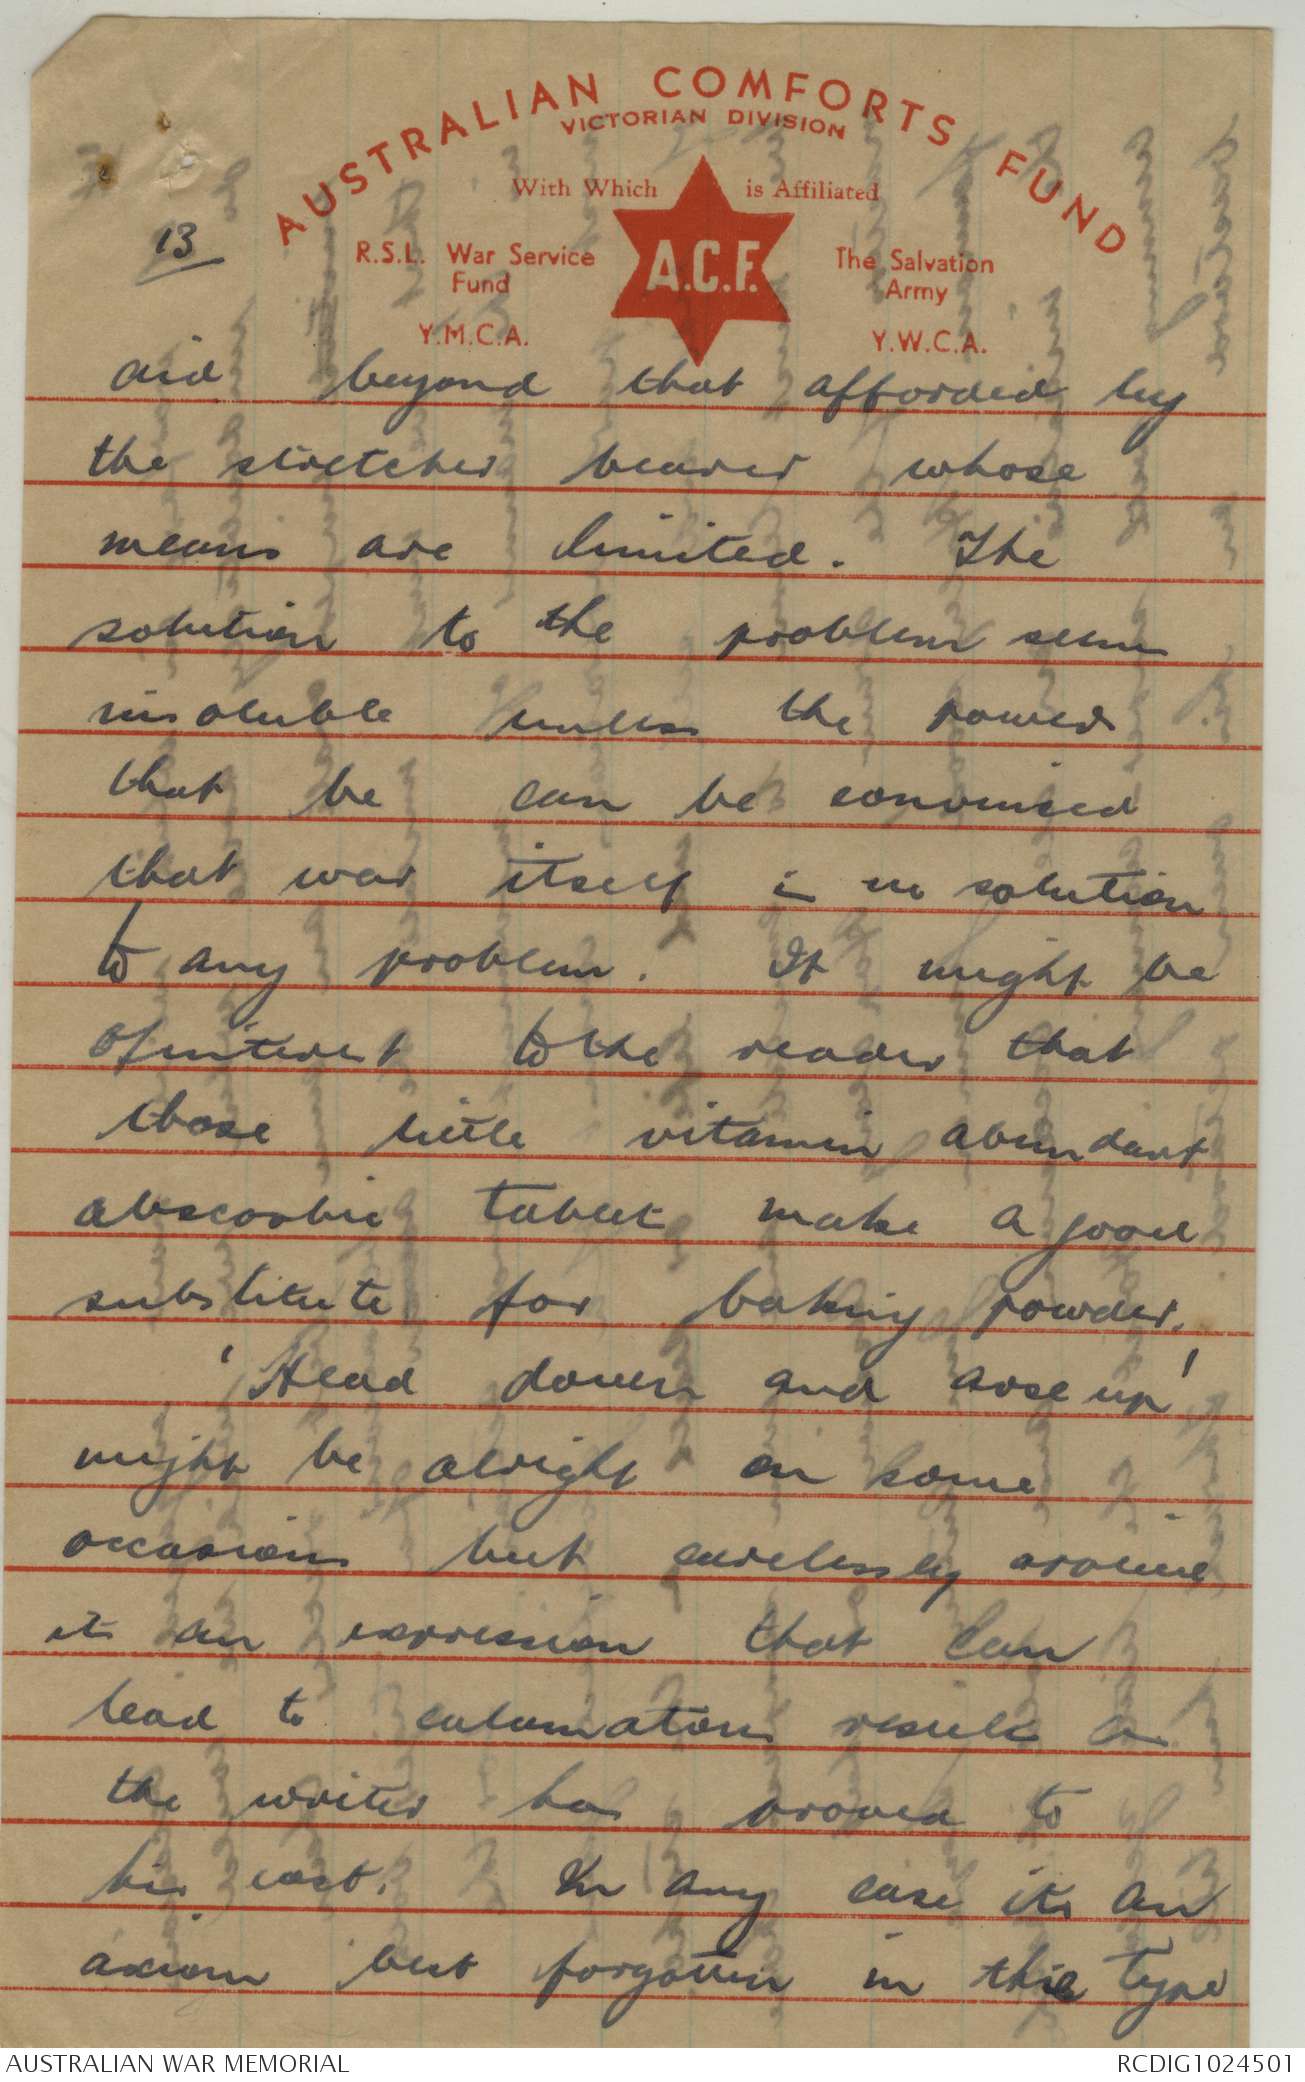 AUSTRALIAN COMFORTS FUND
VICTORIAN DIVISION
With Which is Affiliated
R.S.L. War Service Fund
A.C.F.
The Salvation Army
Y.M.C.A.
Y.W.C.A.
13
aid beyond that afforded by
the stretcher bearer whose
means are limited. The
solution to the problem seem
insoluble unless the powers
that be can be convinced
that war itself is no solution
to any problem. It might be
of interest to the reader that
those little vitamin abundant
abscorbic tablet make a good
substitute for baking powder.
'Head down and arse up'
might be alright on some
occasions but carelessly around
its an expression that can
lead to calamatous result as
the writer has proved to
his cost. In any case its an
axiom best forgotten in this type
AUSTRALIAN WAR MEMORIAL
RCDIG1024501